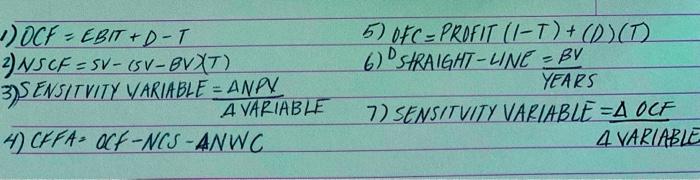 1) OCF = EBIT + D - T
2) NSCF = SV - (SV - BV)(T)
3) SENSITVITY VARIABLE = ΔNPV
Δ VARIABLE
4) CFFA = OCF - NCS - ΔNWC
5) OFC = PROFIT (1-T) + (D)(T)
6) D STRAIGHT-LINE = BV
YEARS
7) SENSITVITY VARIABLE = Δ OCF
Δ VARIABLE